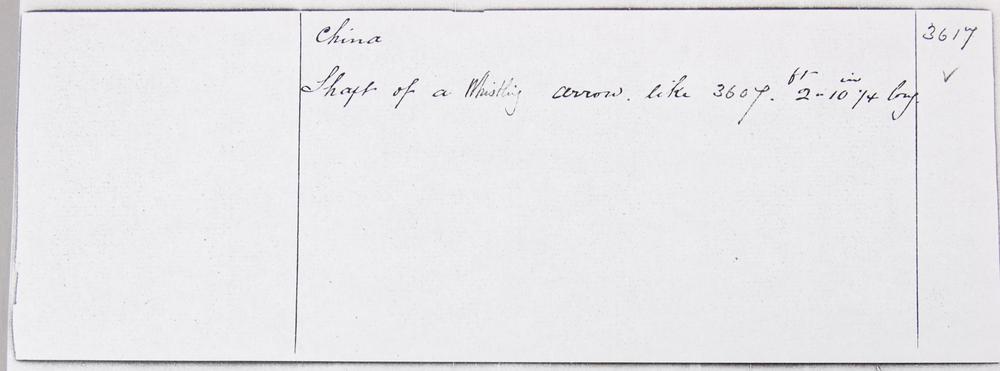 China 3617
Shaft of a Whistling arrow. like 3607. 2 ft - 10 1/4 in long. ✓